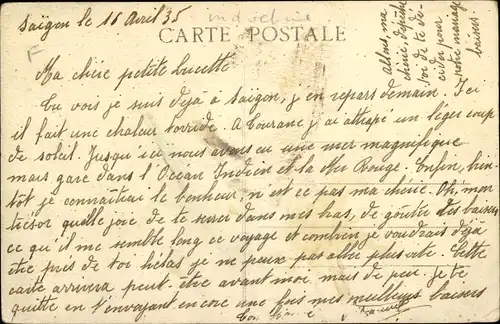 Saïgon le 15 Avril 35
Indochine
F
CARTE POSTALE
Ma chère petite Lucette
Tu vois je suis déjà à Saïgon, j'en repars demain. Ici
il fait une chaleur torride. A Tourane j'ai attrapé un léger coup
de soleil. Jusqu'ici nous avons eu une mer magnifique
mais gare dans l'Océan Indien et la Mer Rouge. Enfin, bien-
tôt je connaîtrai le bonheur, n'est ce pas ma chérie. Oh, mon
trésor quelle joie de te serrer dans mes bras, de goûter des baisers
ce qu'il me semble long ce voyage et combien je voudrais déjà
être près de toi hélas je ne peux pas aller plus vite. Cette
carte arrivera peut-être avant moi, mais de peu. Je te
quitte en t'envoyant encore une fois mes meilleurs baisers
Allons, ma
chérie, dépêche
toi de te dé-
cider pour
notre mariage
baisers